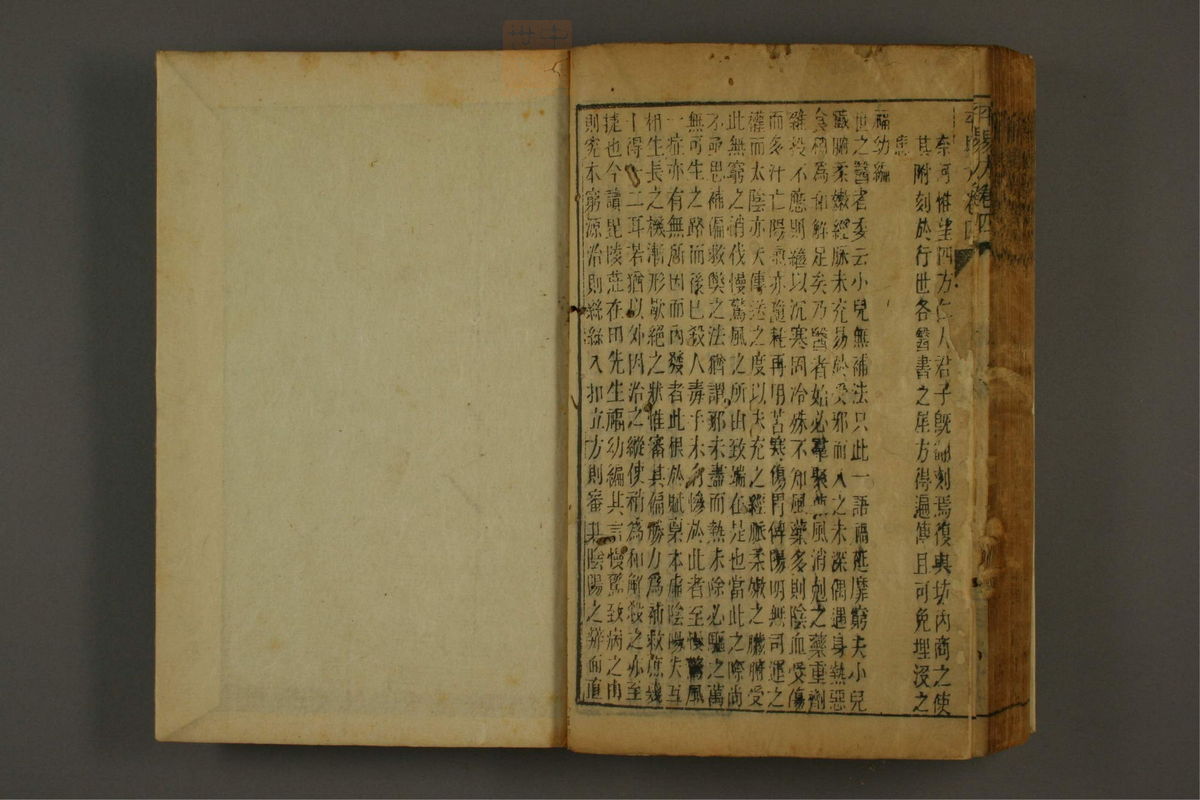 奈何惟望四方仁人君子既師刻焉復與坊內商之使
其附刻於行世各醫書之尾方得遍傳且可免埋沒之
悲
福幼編
世之醫者委云小兒無補法只此一語禍延靡窮夫小兒
臟腑柔嫩經脈未充易於受邪而入之未深偶遇身熱惡
食稍為和解足矣乃醫者始必羣聚燕風消尅之藥重劑
雜投不應則繼以沉寒固冷殊不知風藥多則陰血受傷
而多汗亡陽氣亦隨耗再用苦寒傷胃傳陽明無司運之
權而太陰亦失傳送之度以未充之經脈柔嫩之臟腑受
此無窮之消伐慢驚風之所由致端在是也當此之際尚
不亟思補偏救獘之法猶謂邪未盡而熱未除必驅之萬
無可生之路而後已殺人毒手未有慘於此者至慢驚風
一症亦有無所因而內發者此根於賦稟本虛陰陽失互
相生長之機漸形歇絕之狀惟審其偏勝力為補救庶幾
十得一二耳若猶以外因治之縱使稍為和解殺之亦至
捷也今讀毘陵莊在田先生福幼編其言慢驚致病之由
則究本窮源治則絲絲入扣立方則審其陰陽之辨面直
卷四